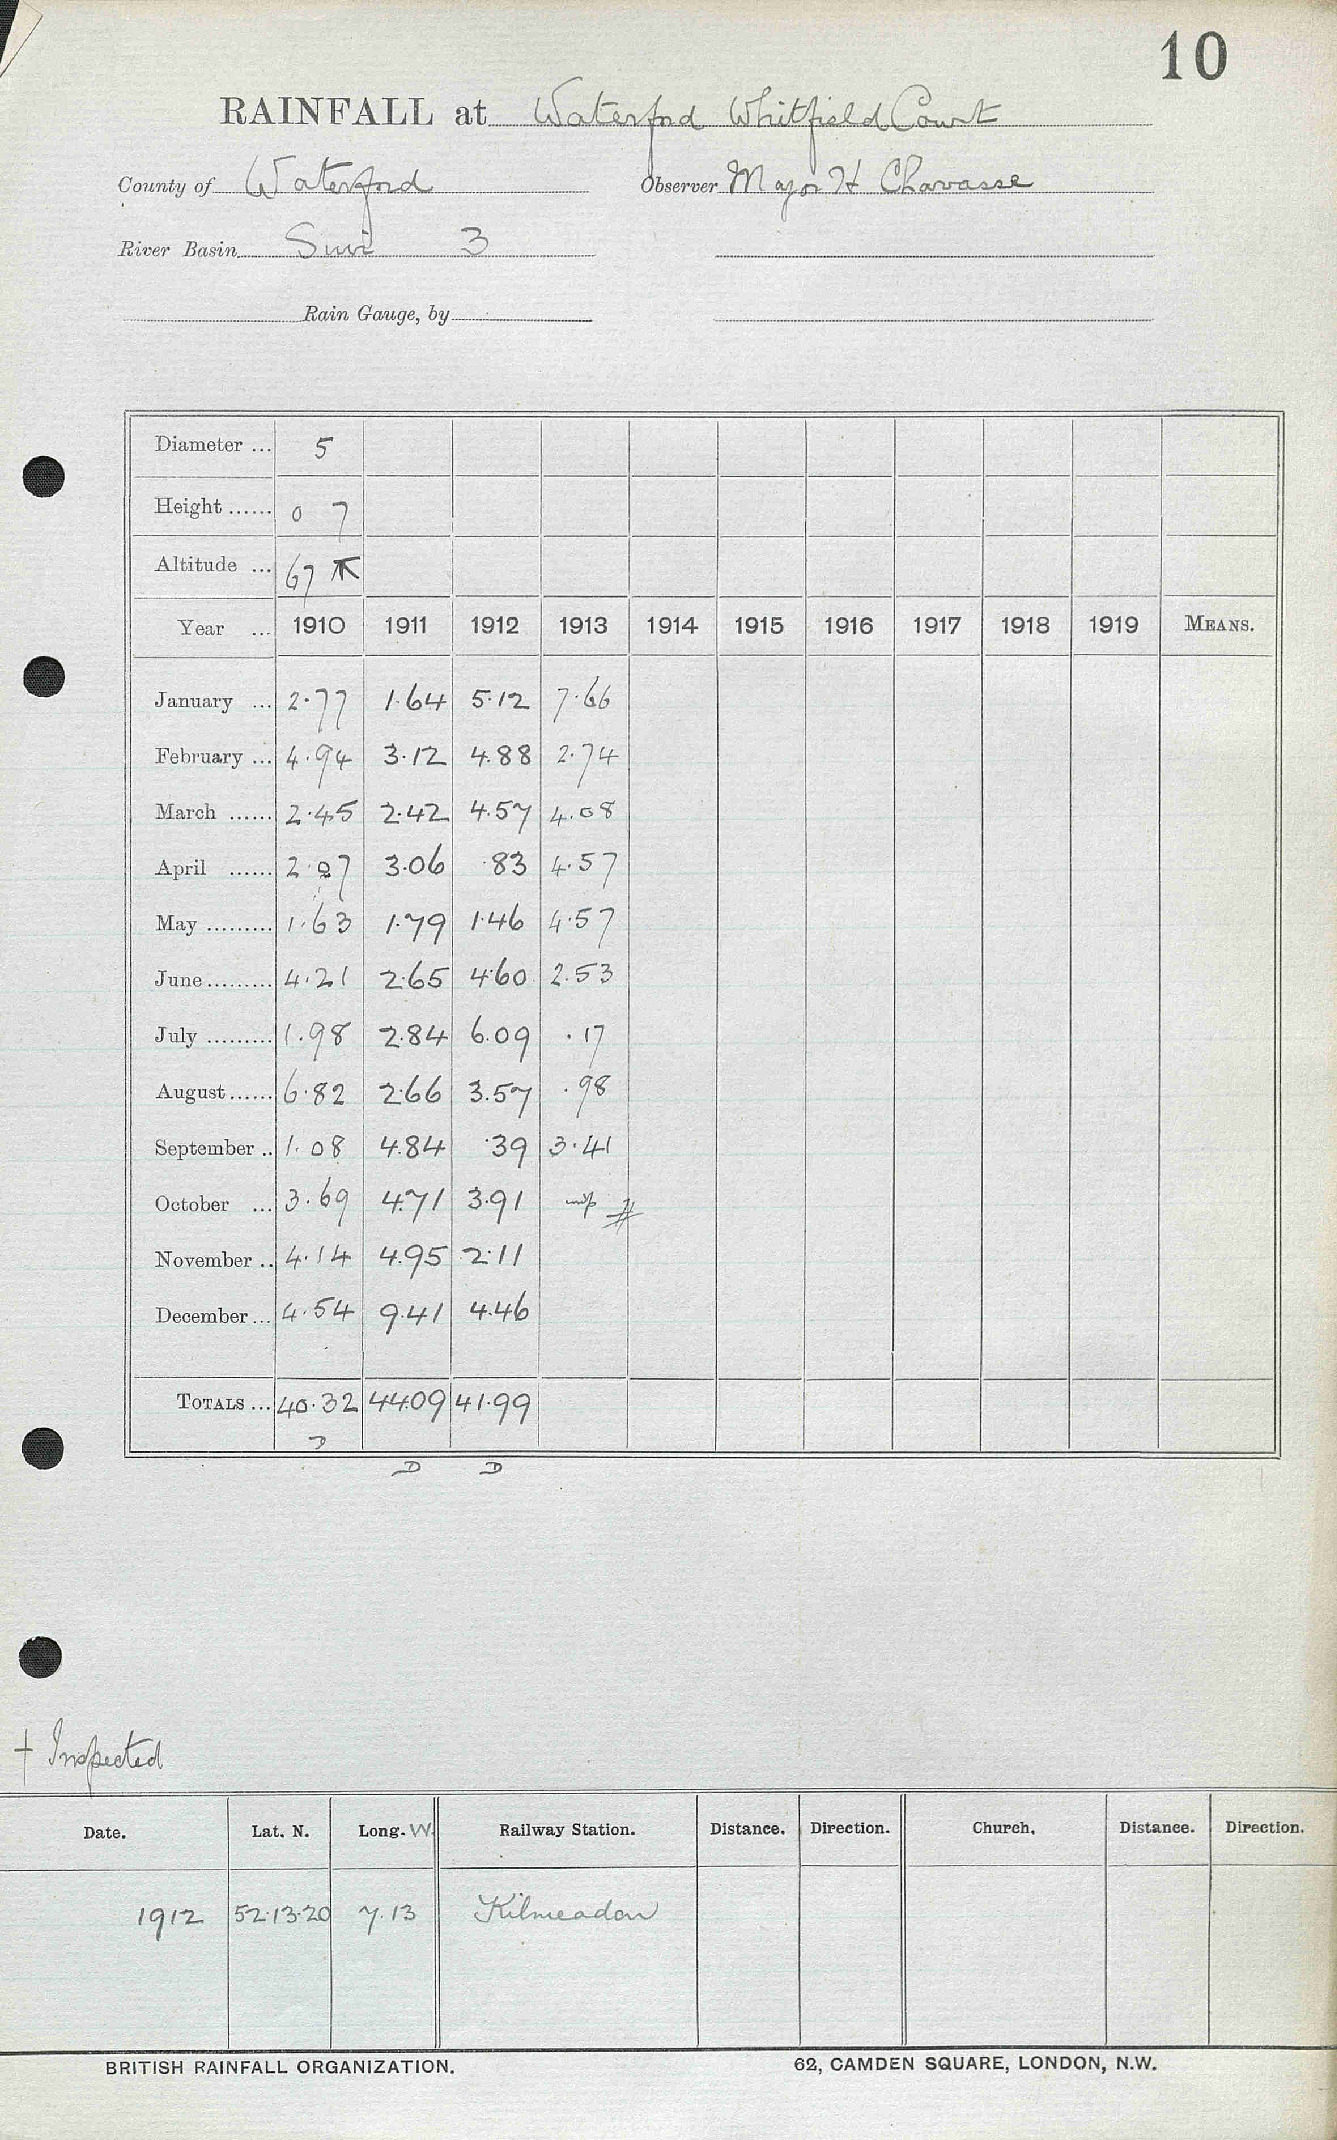 10
RAINFALL at Waterford Whitfield Court
County of Waterford Observer Major H Chavasse
River Basin Suir 3
Rain Gauge, by
Diameter ... 5
Height ...... 0 7
Altitude ... 67
Year ... 1910 1911 1912 1913 1914 1915 1916 1917 1918 1919 MEANS.
January ... 2.77 1.64 5.12 7.66
February ... 4.94 3.12 4.88 2.74
March ...... 2.45 2.42 4.57 4.08
April ...... 2.07 3.06 .83 4.57
May ......... 1.63 1.79 1.46 4.57
June ......... 4.21 2.65 4.60 2.53
July ......... 1.98 2.84 6.09 .17
August ...... 6.82 2.66 3.57 .98
September .. 1.08 4.84 .39 3.41
October ... 3.69 4.71 3.91
November .. 4.14 4.95 2.11
December ... 4.54 9.41 4.46
TOTALS ... 40.32 44.09 41.99
D D D
† Inspected
Date. Lat. N. Long. W. Railway Station. Distance. Direction. Church. Distance. Direction.
1912 52.13.20 7.13 Kilmeadow
BRITISH RAINFALL ORGANIZATION. 62, CAMDEN SQUARE, LONDON, N.W.